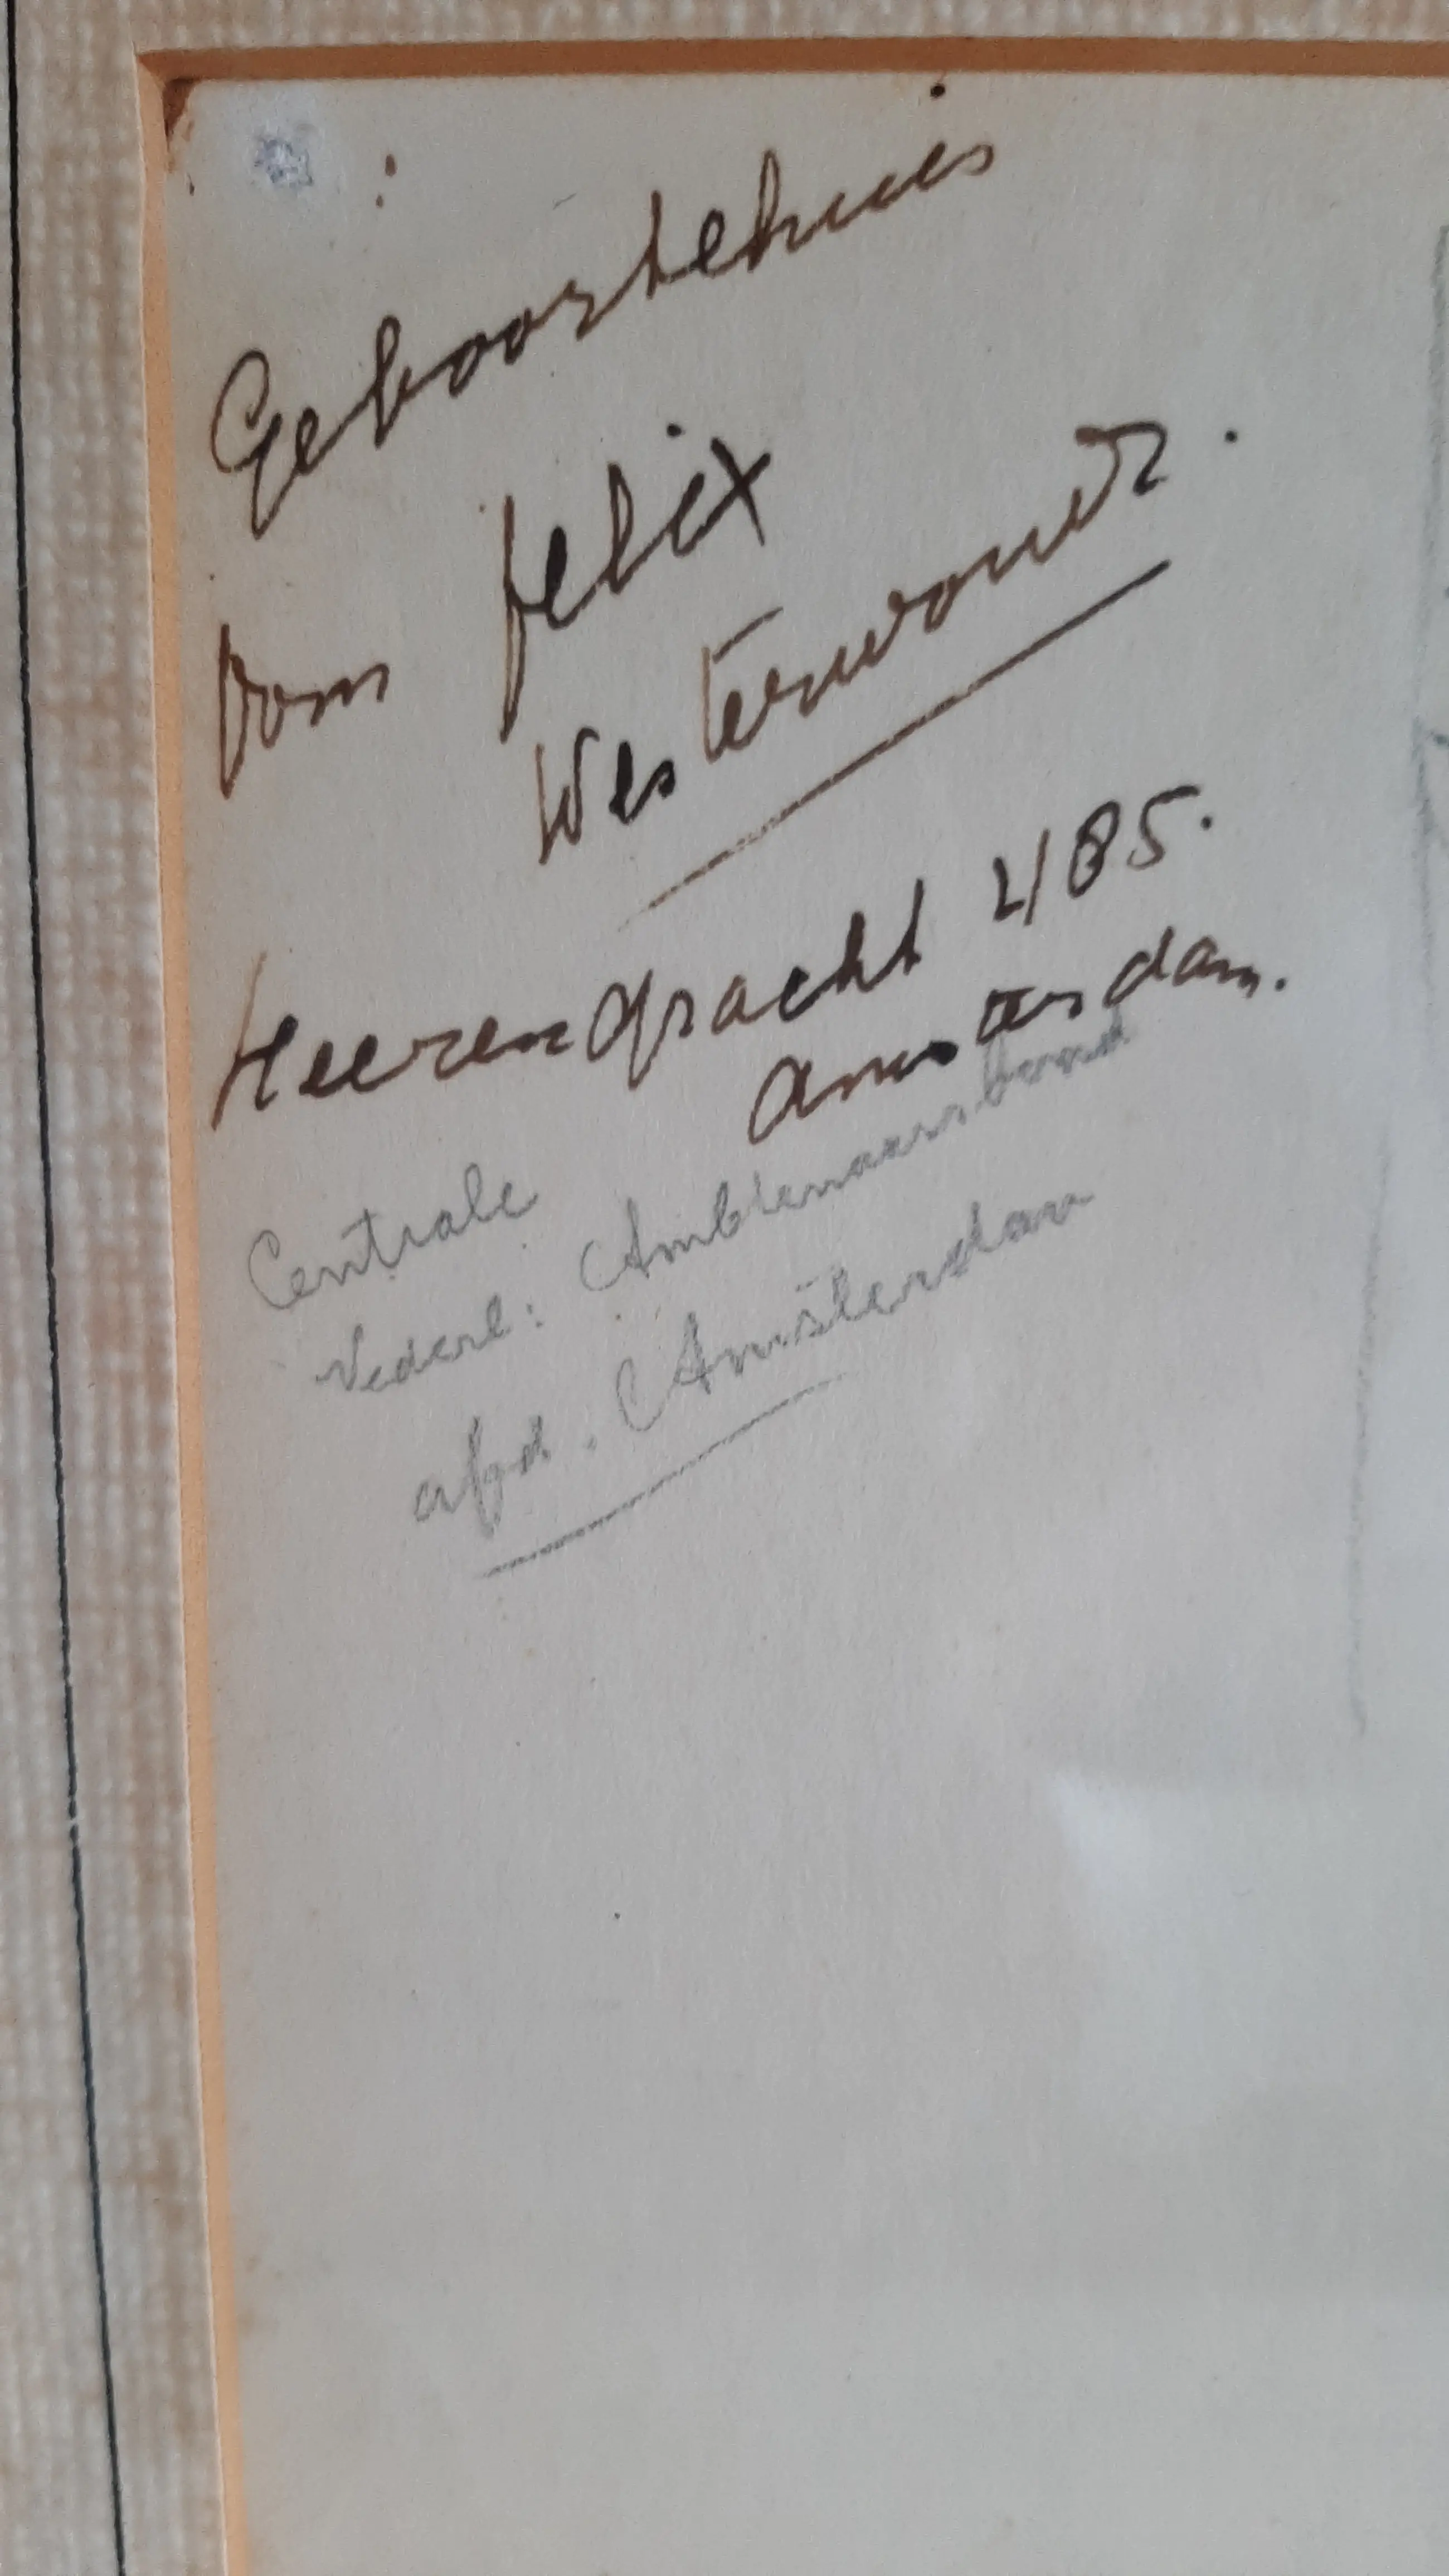 Geboortehuis
Dom Felix
Westerwoudt.
Heerengracht 485.
Amsterdam.
Centrale
Nederl: Ambtenaarsbond
afd. Amsterdam